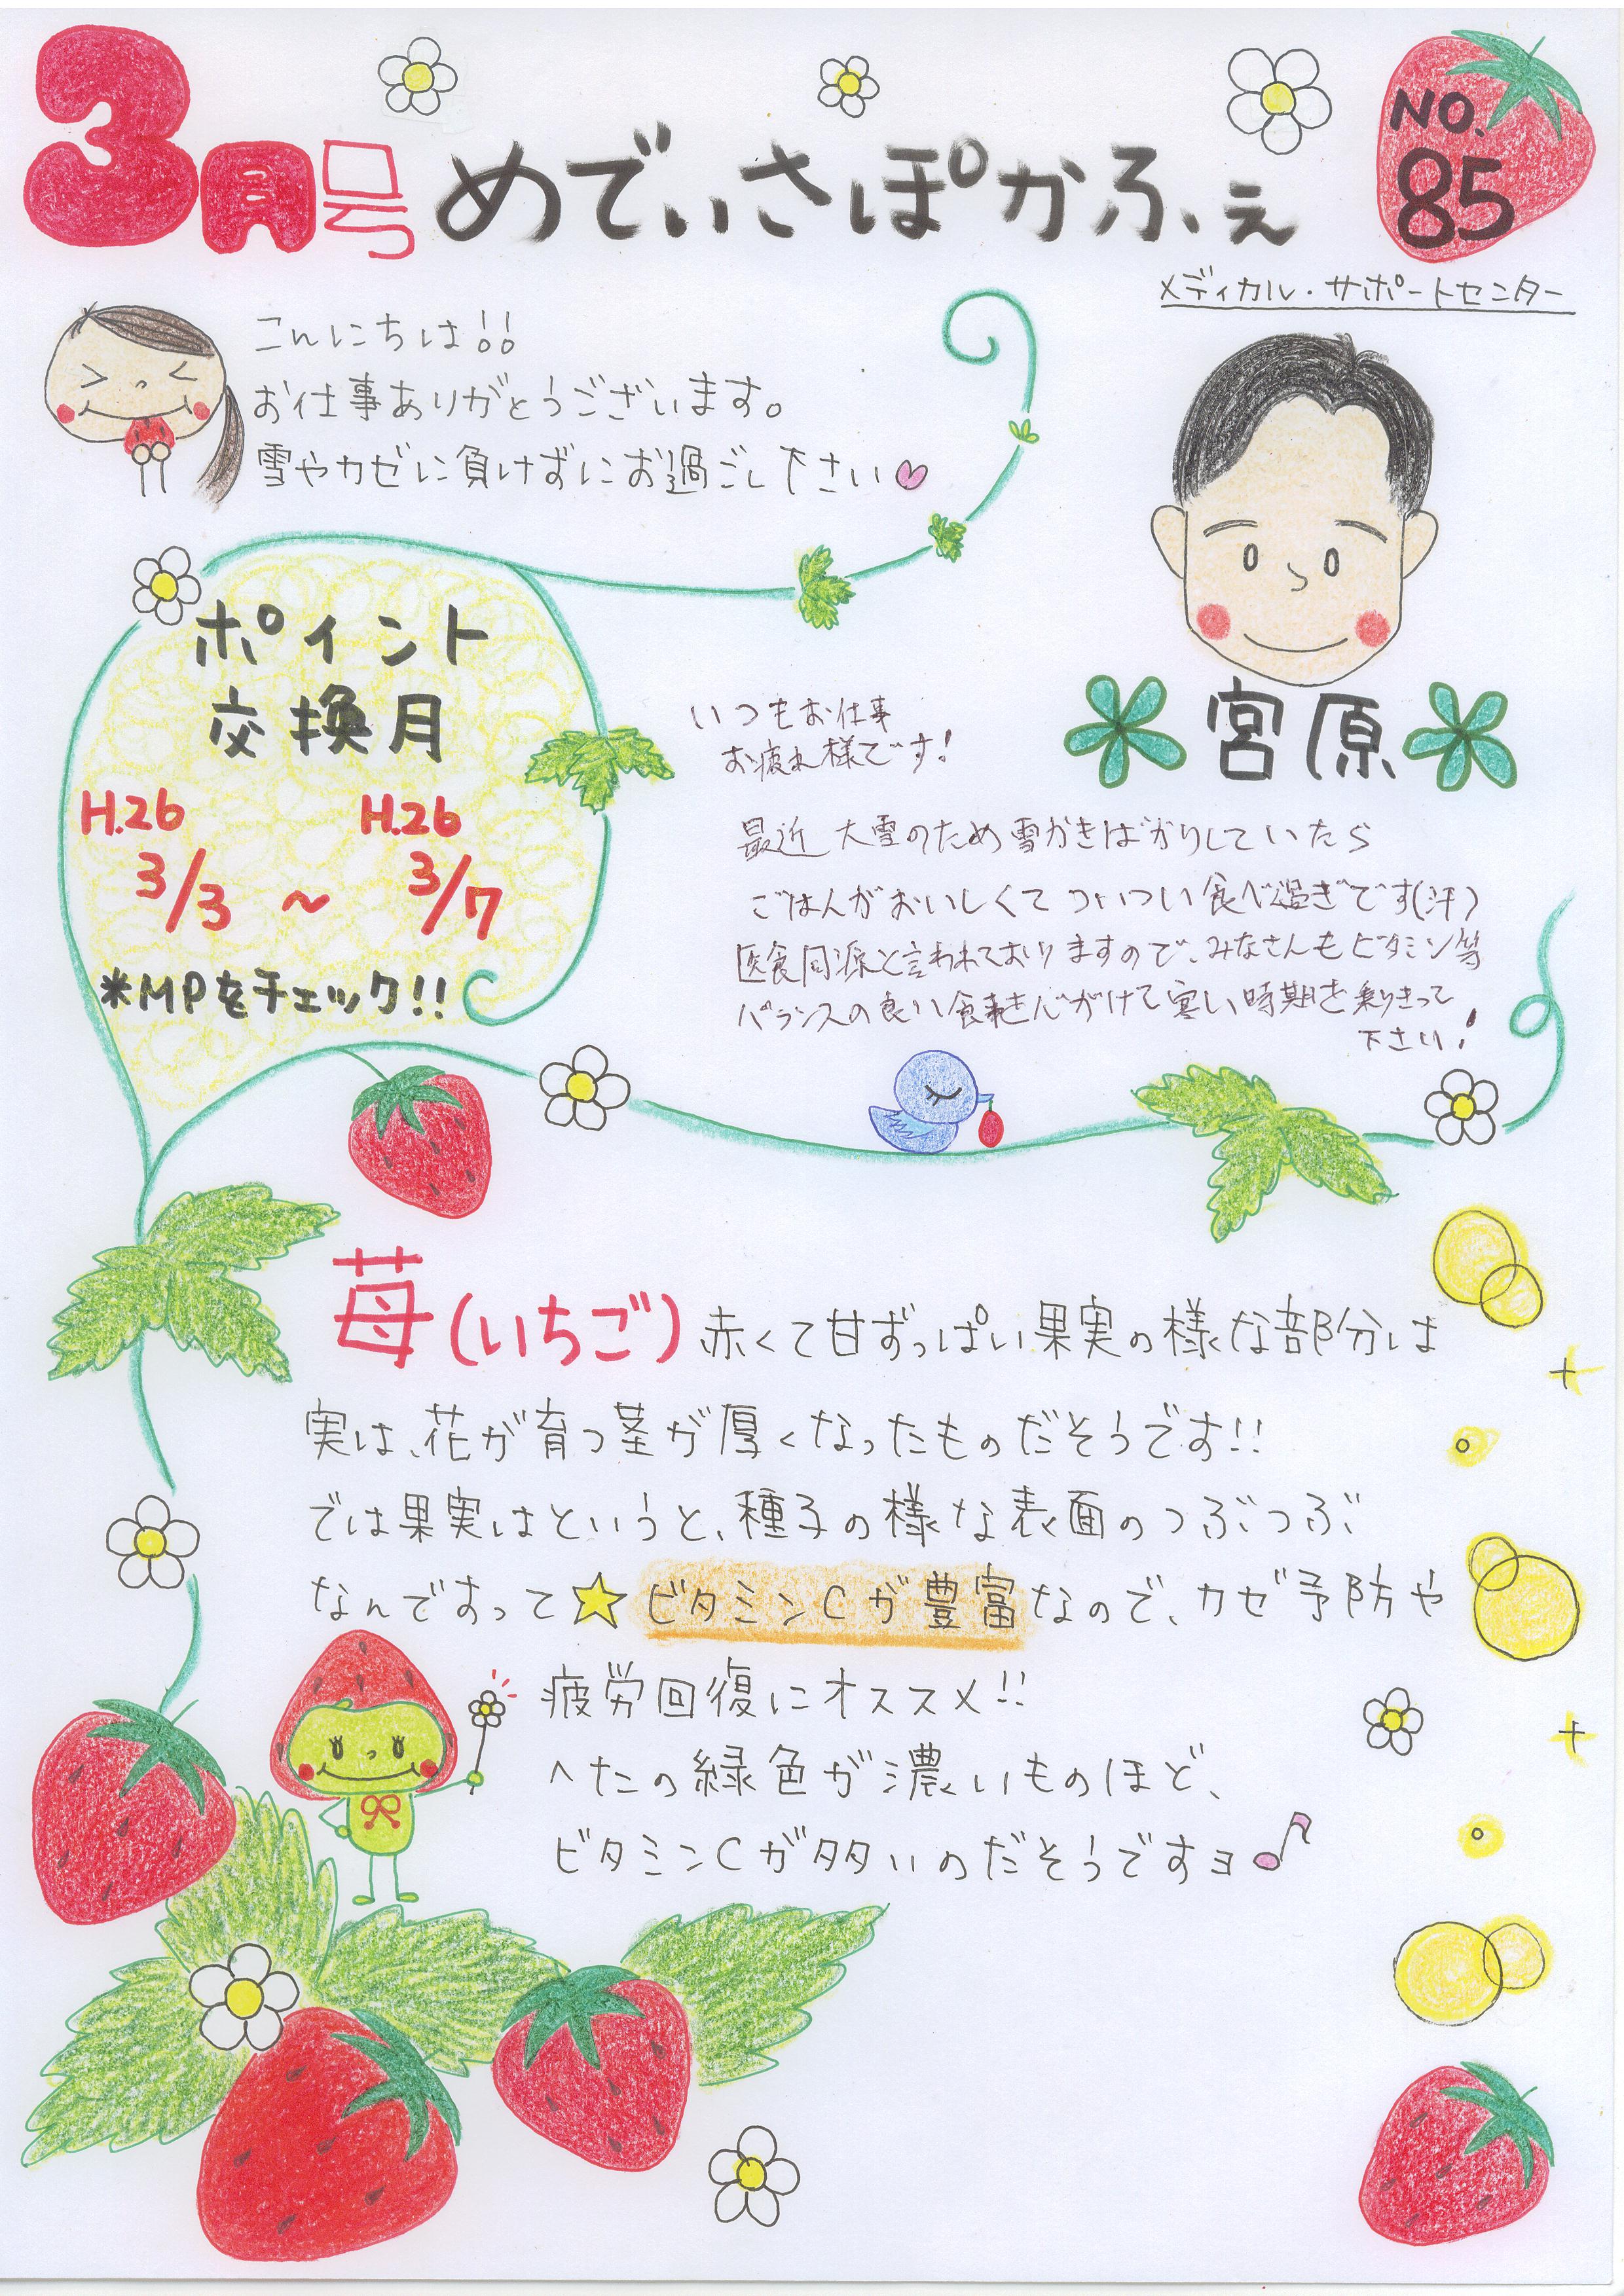 3月号 めでぃさぽかふぇ NO.85
メディカル・サポートセンター
こんにちは!!
お仕事ありがとうございます。
雪やカゼに負けずにお過ごし下さい
ポイント
交換月
H.26 H.26
3/3 ~ 3/7
*MPをチェック!!
宮原
いつもお仕事
お疲れ様です!
最近大雪のため雪かきばかりしていたら
ごはんがおいしくてついつい食べ過ぎです(汗)
医食同源と言われておりますので、みなさんもビタミン等
バランスの良い食事を心がけて寒い時期を乗りきって
下さい!
苺(いちご)赤くて甘ずっぱい果実の様な部分は
実は、花が育つ茎が厚くなったものだそうです!!
では果実はというと、種子の様な表面のつぶつぶ
なんですって☆ビタミンCが豊富なので、カゼ予防や
疲労回復にオススメ!!
へたの緑色が濃いものほど、
ビタミンCが多いのだそうですヨ♪